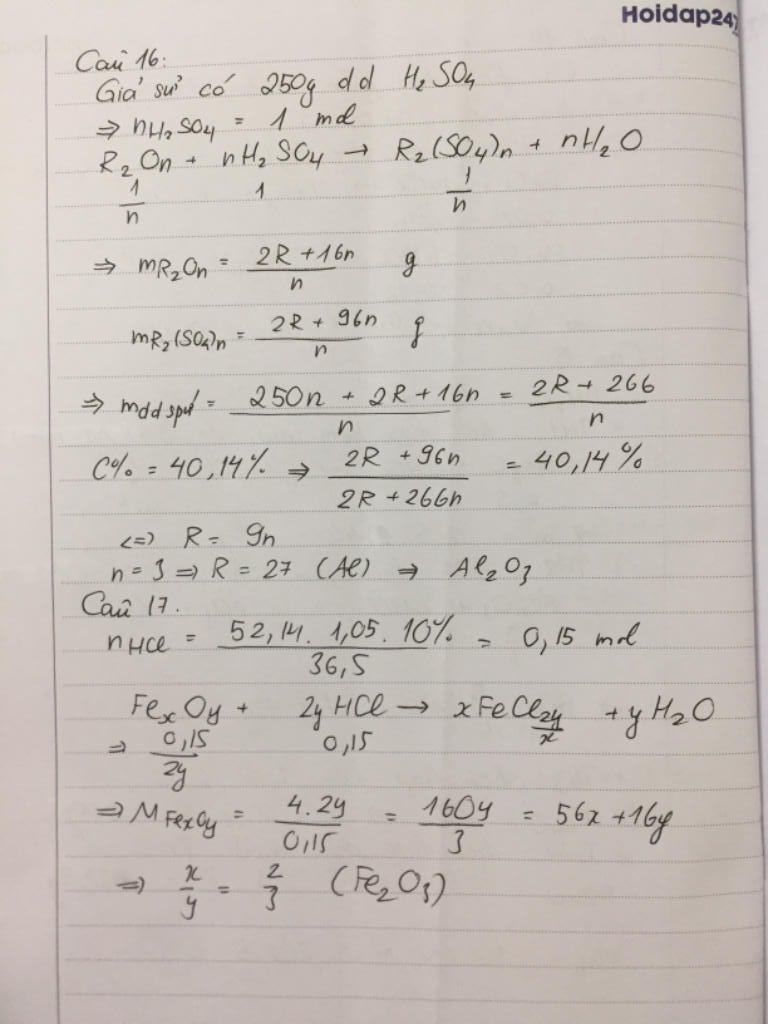 Hoidap247
Câu 16:
Giả sử có 250g dd H₂SO₄
⇒ nH₂SO₄ = 1 mol
R₂On + nH₂SO₄ → R₂(SO₄)n + nH₂O
1/n 1 1/n
⇒ mR₂On = (2R + 16n)/n g
mR₂(SO₄)n = (2R + 96n)/n g
⇒ mdd spứ = (250n + 2R + 16n)/n = (2R + 266)/n
C% = 40,14% ⇒ (2R + 96n)/(2R + 266n) = 40,14%
<=> R = 9n
n = 3 ⇒ R = 27 (Al) ⇒ Al₂O₃
Câu 17.
nHCl = (52,14. 1,05. 10%)/36,5 = 0,15 mol
FexOy + 2yHCl → xFeCl2y/x + yH₂O
⇒ 0,15/2y 0,15
⇒ MFexOy = (4.2y)/0,15 = 160y/3 = 56x + 16y
⇒ x/y = 2/3 (Fe₂O₃)